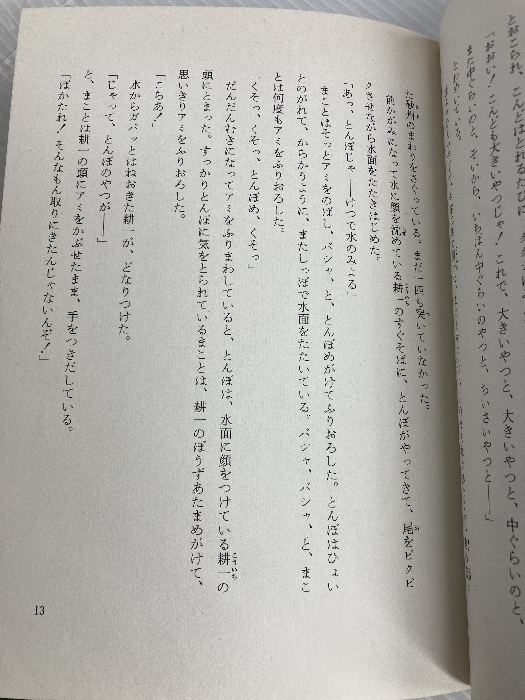 とおこられ、こんどはとれるたびに、
「おおい！ こんども大きいやつじゃ！ これで、大きいやつと、中ぐらいのと、
また中ぐらいのと、そいから、いちばん中ぐらいのやつと、ちいさいやつと──」
とわめいている。
た砂州のまわりをさぐっている。まだ一匹も突いていなかった。
前かがみになって水に顔を沈めている耕一のすぐそばに、とんぼがやってきて、尾をピクピ
クさせながら水面をたたきはじめた。
「あっ、とんぼじゃ──けつで水のみよる」
まことはそっとアミをのばし、パシャ、と、とんぼめがけてふりおろした。とんぼはひょい
とのがれて、からかうように、またしっぽで水面をたたいている。パシャ、パシャ、と、まこ
とは何度もアミをふりおろした。
「くそっ、くそっ、とんぼめ、くそっ」
だんだんむきになってアミをふりまわしていると、とんぼは、水面に顔をつけている耕一の
頭にとまった。すっかりとんぼに気をとられているまことは、耕一のぼうずあたまめがけて、
思いきりアミをふりおろした。
「こらあ！」
水からガバッとはねおきた耕一が、どなりつけた。
「じゃって、とんぼのやつが──」
と、まことは耕一の頭にアミをかぶせたまま、手をつきだしている。
「ばかたれ！ そんなもん取りにきたんじゃないんぞ！」
13